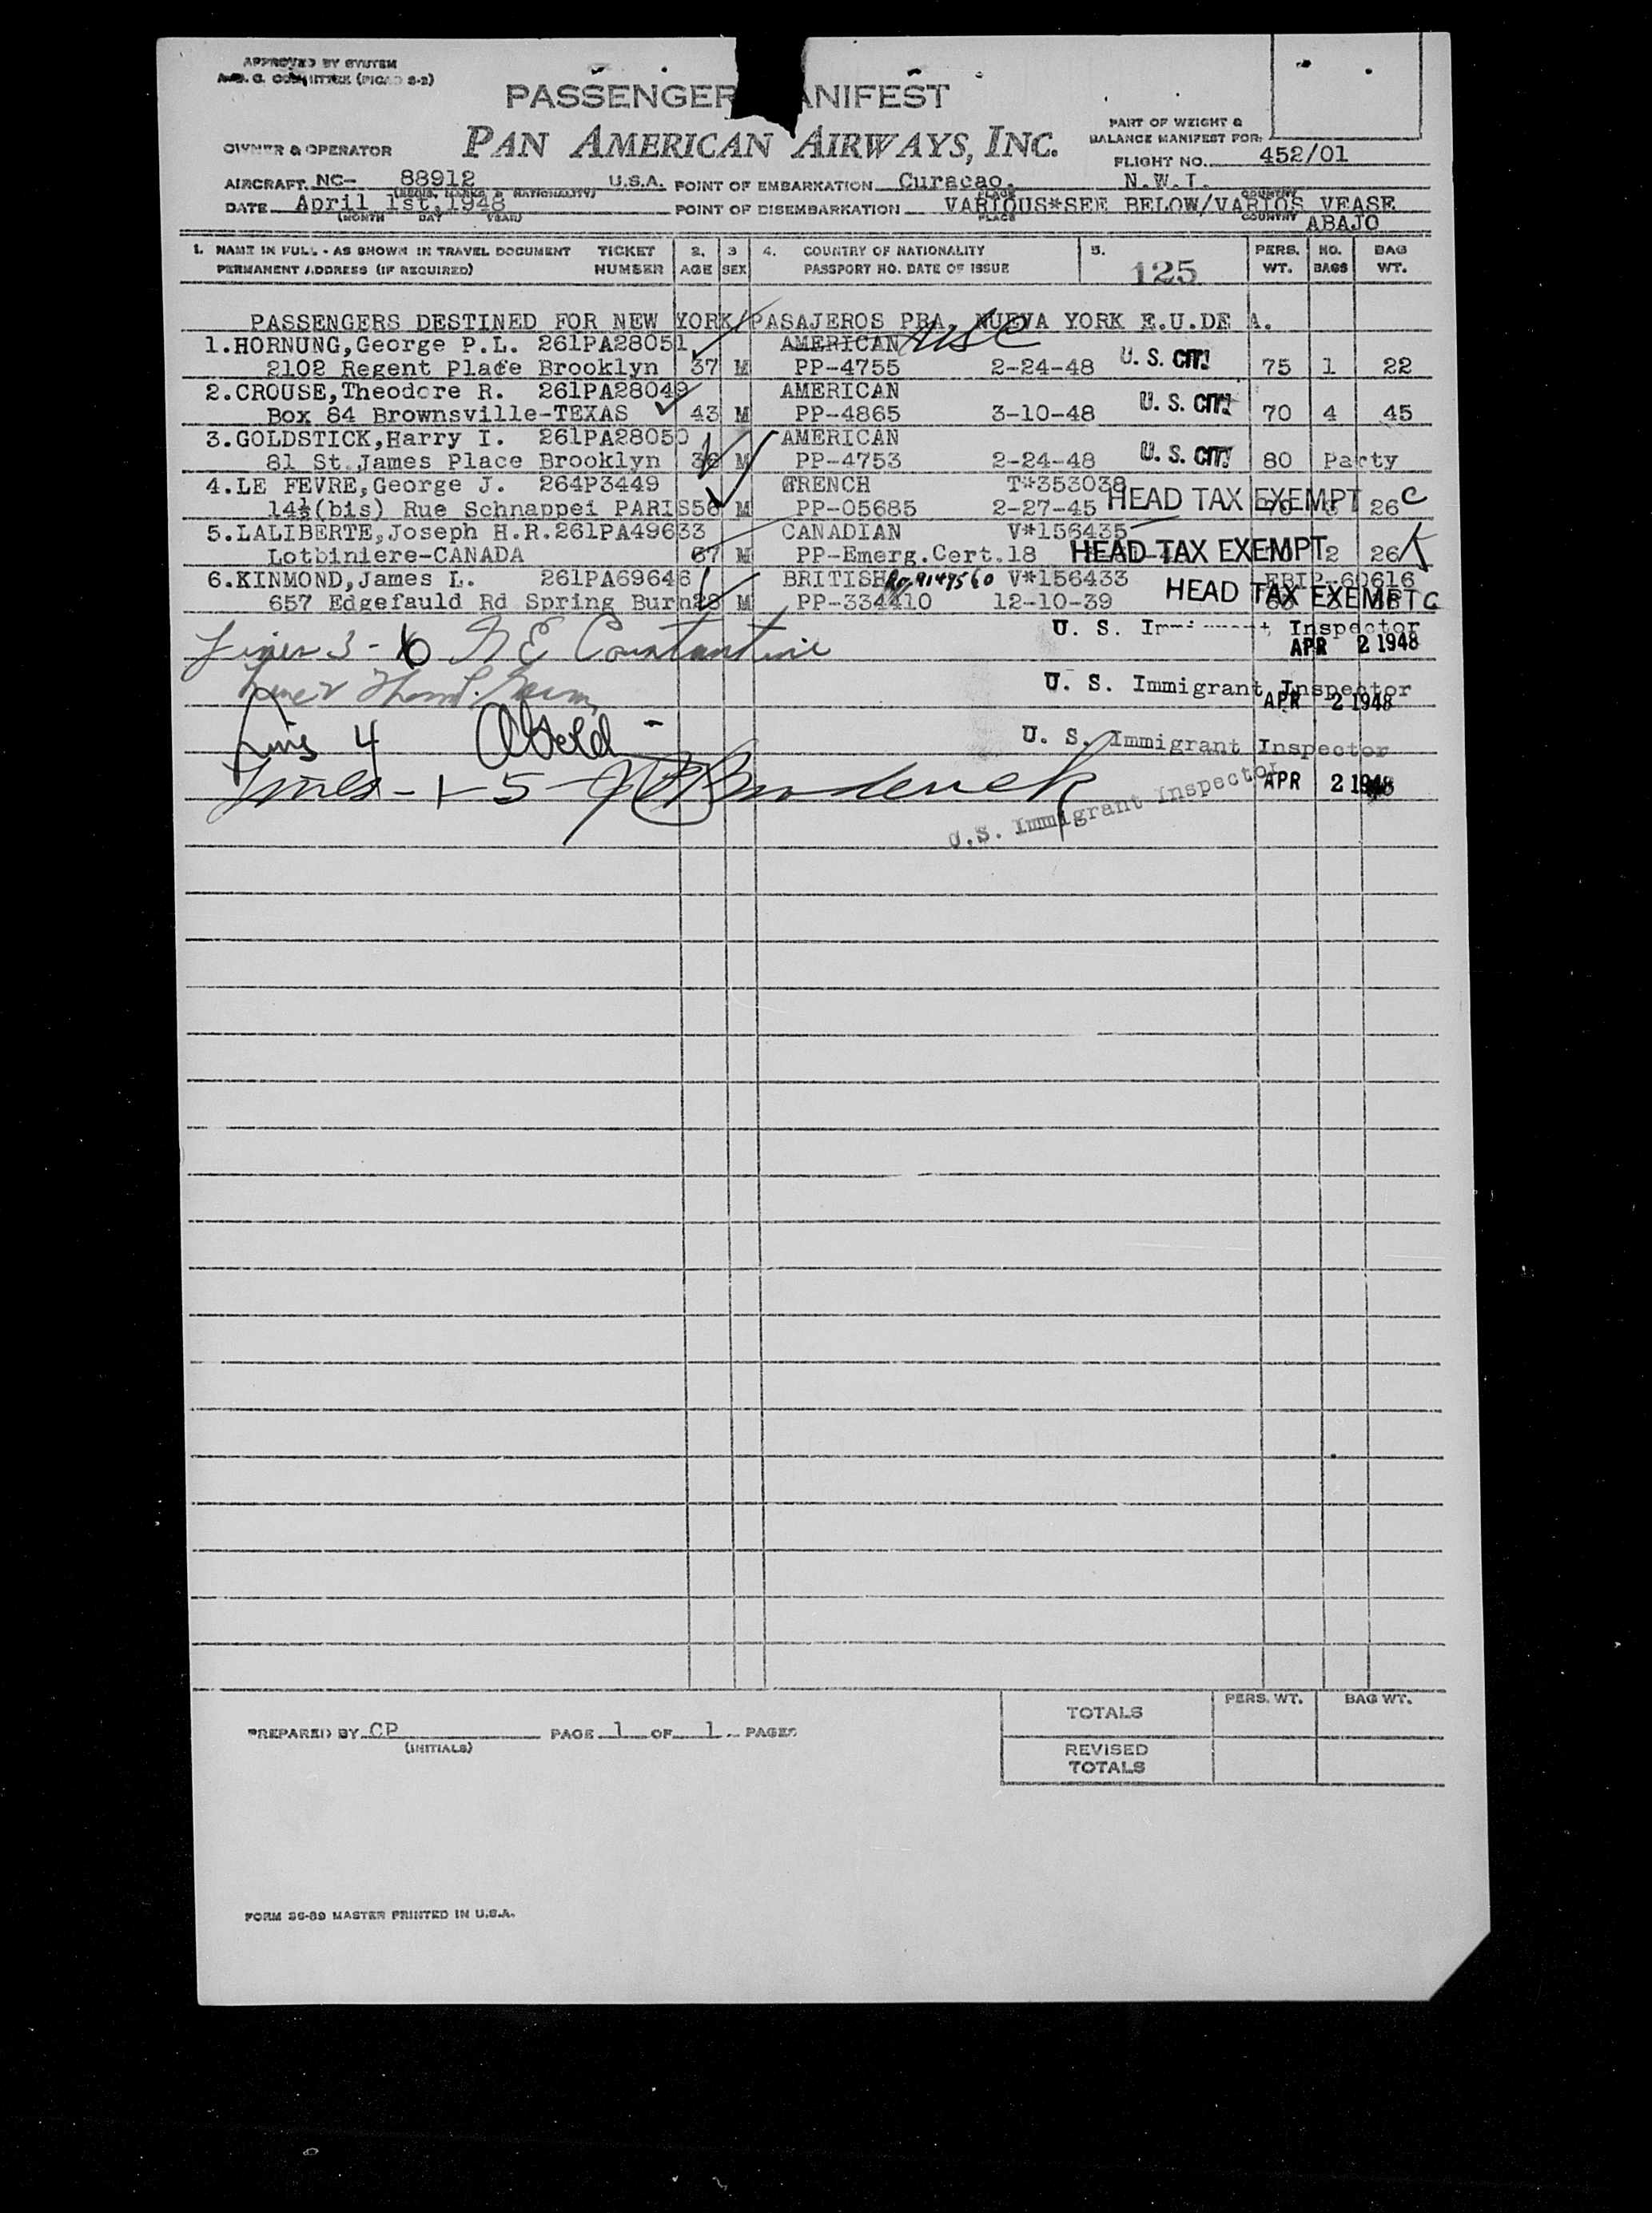 APPROVED BY SYSTEM
PASSENGER ANIFEST
PAN AMERICAN AIRWAYS, INC.
PART OF WEIGHT &
BALANCE MANIFEST FOR:
OWNER & OPERATOR
FLIGHT NO. 452/01
AIRCRAFT NC- 88912 U.S.A. POINT OF EMBARKATION Curacao, N.W.I.
DATE April 1st,1948 POINT OF DISEMBARKATION VARIOUS*SEE BELOW/VARIOS VEASE
(MONTH DAY YEAR) PLACE COUNTRY ABAJO
1. NAME IN FULL - AS SHOWN IN TRAVEL DOCUMENT TICKET 2. 3 4. COUNTRY OF NATIONALITY 5. PERS. NO. BAG
PERMANENT ADDRESS (IF REQUIRED) NUMBER AGE SEX PASSPORT NO. DATE OF ISSUE 125 WT. BAGS WT.
PASSENGERS DESTINED FOR NEW YORK/PASAJEROS PRA. NUEVA YORK E.U.DE A.
1.HORNUNG,George P.L. 261PA28051 AMERICAN USC
2102 Regent Place Brooklyn 37 M PP-4755 2-24-48 U. S. CIT. 75 1 22
2.CROUSE,Theodore R. 261PA28049 AMERICAN
Box 84 Brownsville-TEXAS 43 M PP-4865 3-10-48 U. S. CIT. 70 4 45
3.GOLDSTICK,Harry I. 261PA28050 AMERICAN
81 St.James Place Brooklyn 36 M PP-4753 2-24-48 U. S. CIT. 80 Party
4.LE FEVRE,George J. 264P3449 FRENCH T*353038
14½(bis) Rue Schnappei PARIS 56 M PP-05685 2-27-45 HEAD TAX EXEMPT 26 C
5.LALIBERTE,Joseph H.R.261PA49633 CANADIAN V*156435
Lotbiniere-CANADA 67 M PP-Emerg.Cert.18 HEAD TAX EXEMPT 2 26 K
6.KINMOND,James L. 261PA69646 BRITISH V*156433
657 Edgefauld Rd Spring Burn 28 M PP-334410 12-10-39 HEAD TAX EXEMPT C
Lines 3-6 Constantine
U. S. Inspector
APR 2 1948
U. S. Immigrant Inspector
APR 2 1948
Lins 4
U. S. Immigrant Inspector
Lines - 1-5 Broderick
APR 2 1948
U.S. Immigrant Inspector
PERS. WT. BAG WT.
TOTALS
PREPARED BY CP PAGE 1 OF 1 PAGES
(INITIALS)
REVISED
TOTALS
FORM 36-89 MASTER PRINTED IN U.S.A.